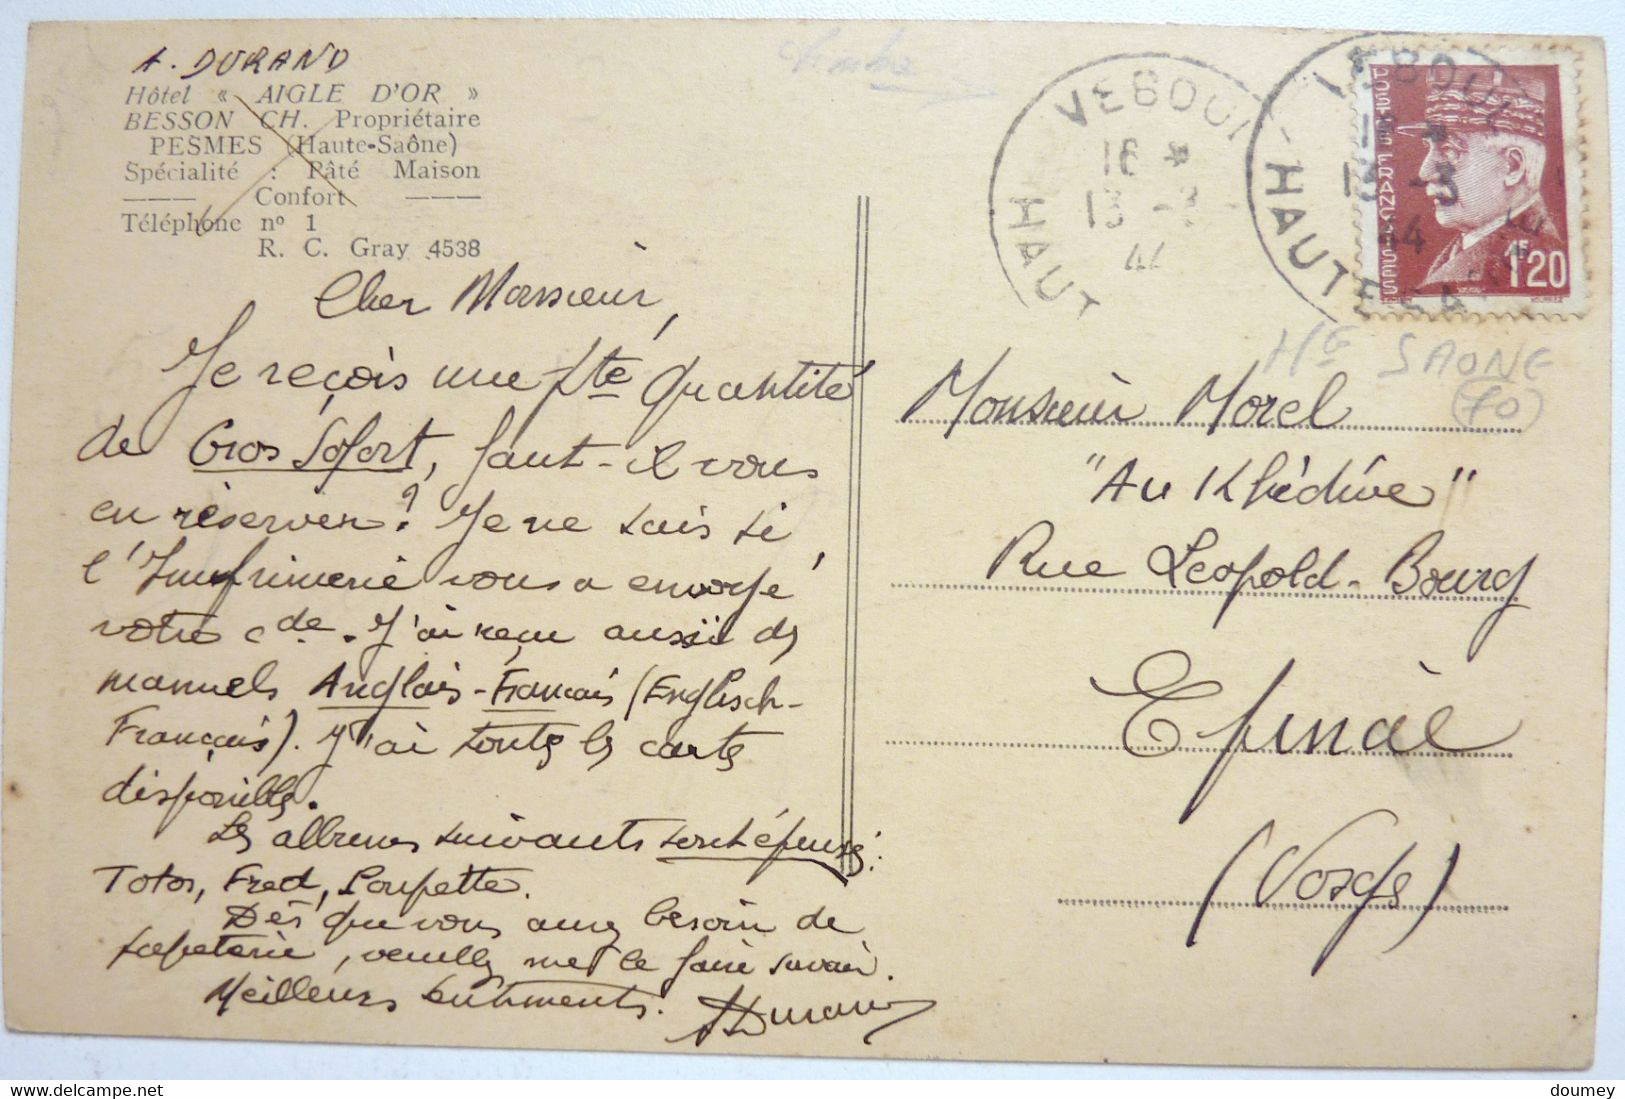 A. DURAND
Hôtel « AIGLE D'OR »
BESSON CH. Propriétaire
PESMES (Haute-Saône)
Spécialité : Pâté Maison
——— Confort ———
Téléphone n° 1
R. C. Gray 4538
Cher Monsieur,
Je reçois une pte quantité
de Gros Sofort, faut-il vous
en réserver ? Je ne sais si
l'Imprimerie vous a envoyé
votre cde. J'ai reçu aussi des
manuels Anglais-Français (Englisch-
Français). J'ai toutes les cartes
disponibles.
Les albums suivants sont épuisés :
Totor, Fred, Poupette.
Dès que vous aurez besoin de
papeterie, veuillez me le faire savoir.
Meilleurs sentiments. ADurand
16 *
13 -3
44
HAUT
HAUTE
13 -3
44
POSTES FRANÇAISES
1F20
Hte SAONE
(70)
Monsieur Morel
"Au Khédive"
Rue Leopold-Bourg
Epinal
(Vosges)
doumey